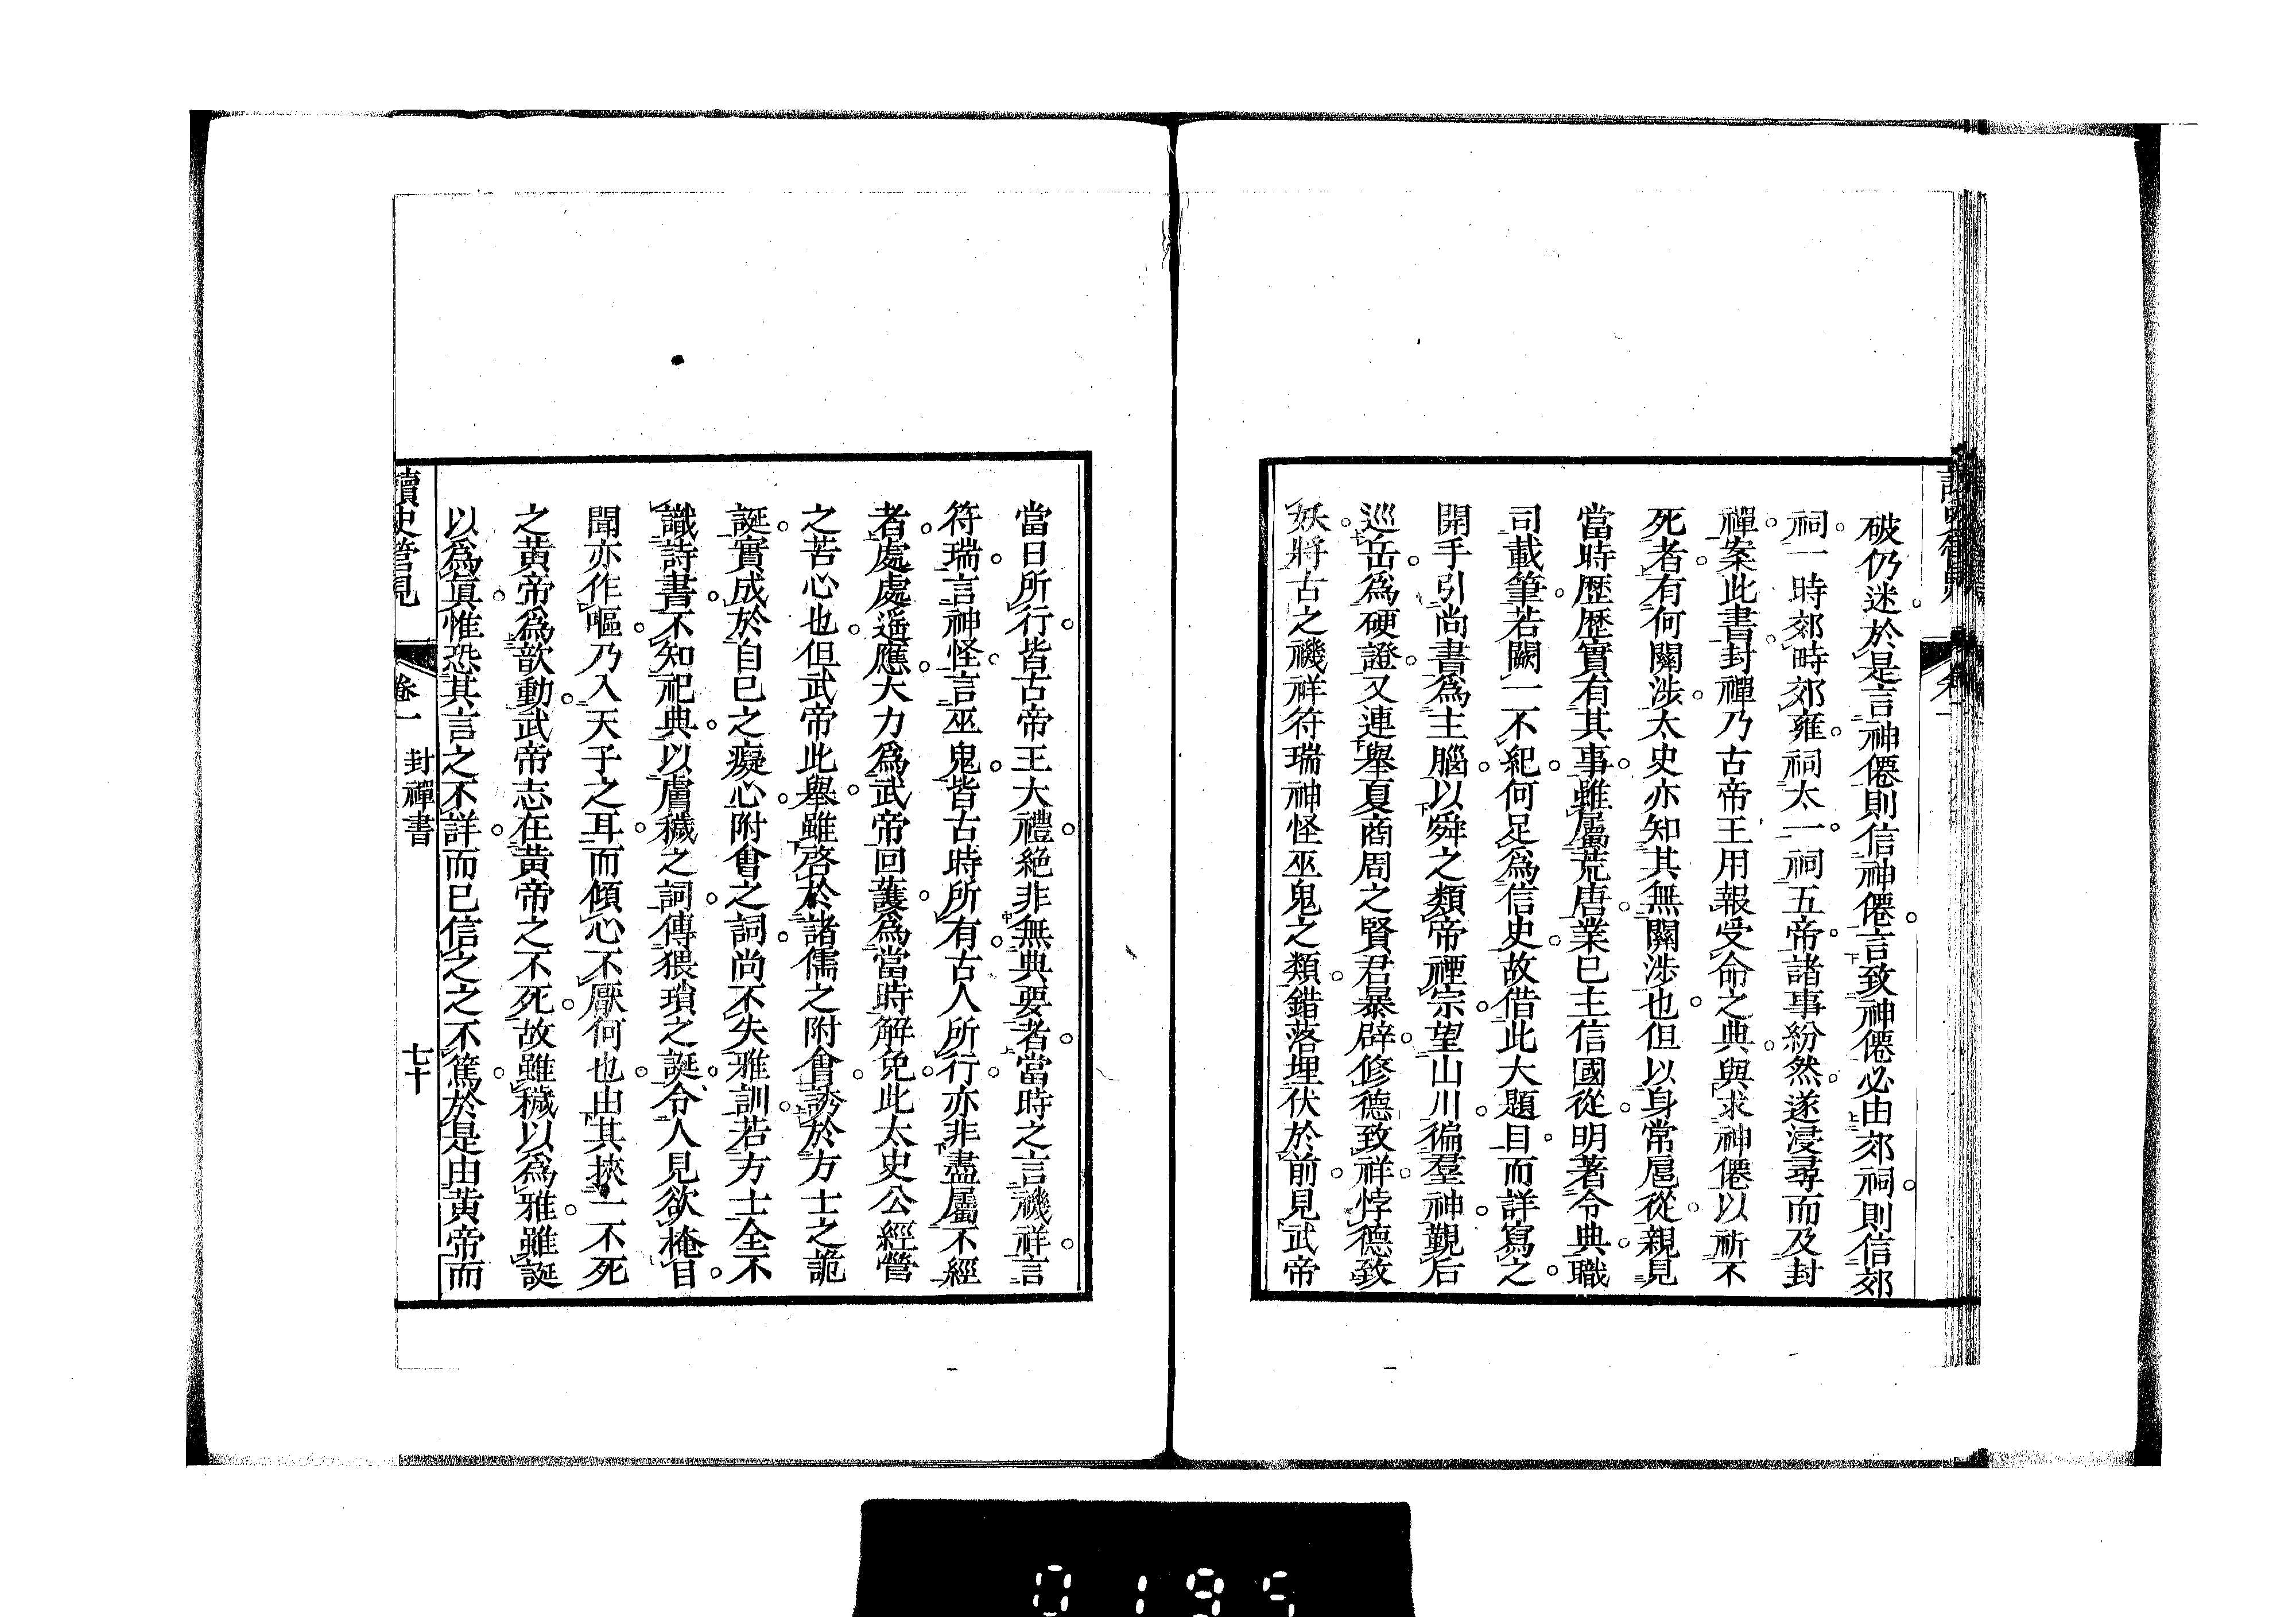 破仍迷於是言神僊則信神僊言致神僊必由郊祠則信郊
祠一時郊畤郊雍祠太一祠五帝諸事紛然遂浸尋而及封
禪案此書封禪乃古帝王用報受命之典與求神僊以祈不
死者有何關涉太史亦知其無關涉也但以身常扈從親見
當時歷歷實有其事雖屬荒唐業已主信國從明著令典職
司載筆若闕一不紀何足爲信史故借此大題目而詳寫之
開手引尚書爲主腦以舜之類帝禋宗望山川徧羣神觀后
巡岳爲硬證又連舉夏商周之賢君暴辟修德致祥悖德致
妖將古之禨祥符瑞神怪巫鬼之類錯落埋伏於前見武帝
當日所行皆古帝王大禮絶非無典要者當時之言禨祥言
符瑞言神怪言巫鬼皆古時所有古人所行亦非盡屬不經
者處處遥應大力爲武帝回護爲當時解免此太史公經營
之苦心也但武帝此舉雖啓於諸儒之附會誘於方士之詭
誕實成於自己之癡心附會之詞尚不失雅訓若方士全不
識詩書不知祀典以膚穢之詞傳猥瑣之誕令人見欲掩目
聞亦作嘔乃入天子之耳而傾心不厭何也由其挾一不死
之黄帝爲歆動武帝志在黄帝之不死故雖穢以爲雅雖誕
以爲眞惟恐其言之不詳而已信之之不篤於是由黄帝而
讀史管見
卷一
封禪書
七十
0194